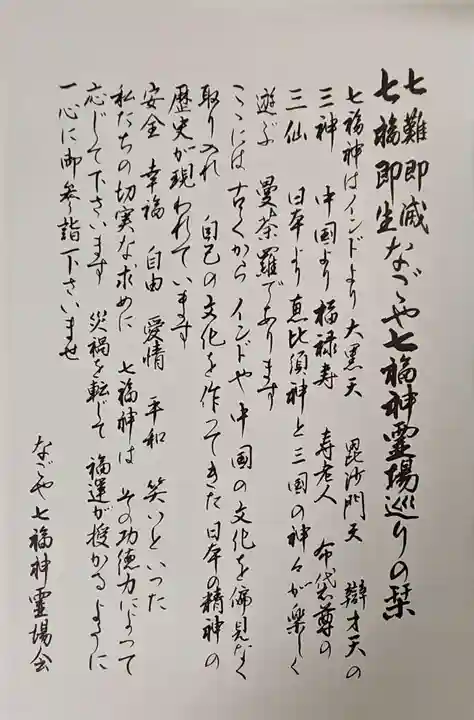 七難即滅
七福即生
なごや七福神霊場巡りの栞
七福神はインドより 大黒天 毘沙門天 辯才天の
三神 中国より 福禄寿 寿老人 布袋尊の
三仙 日本より 恵比須神と三国の神々が楽しく
遊ぶ 曼荼羅であります
ここには 古くから インドや中国の文化を偏見なく
取り入れ 自己の文化を作ってきた日本の精神の
歴史が現われています
安全 幸福 自由 愛情 平和 笑いといった
私たちの切実な求めに 七福神は その功徳力によって
応じて下さいます 災禍を転じて 福運が授かるように
一心に御参詣下さいませ
なごや七福神霊場会